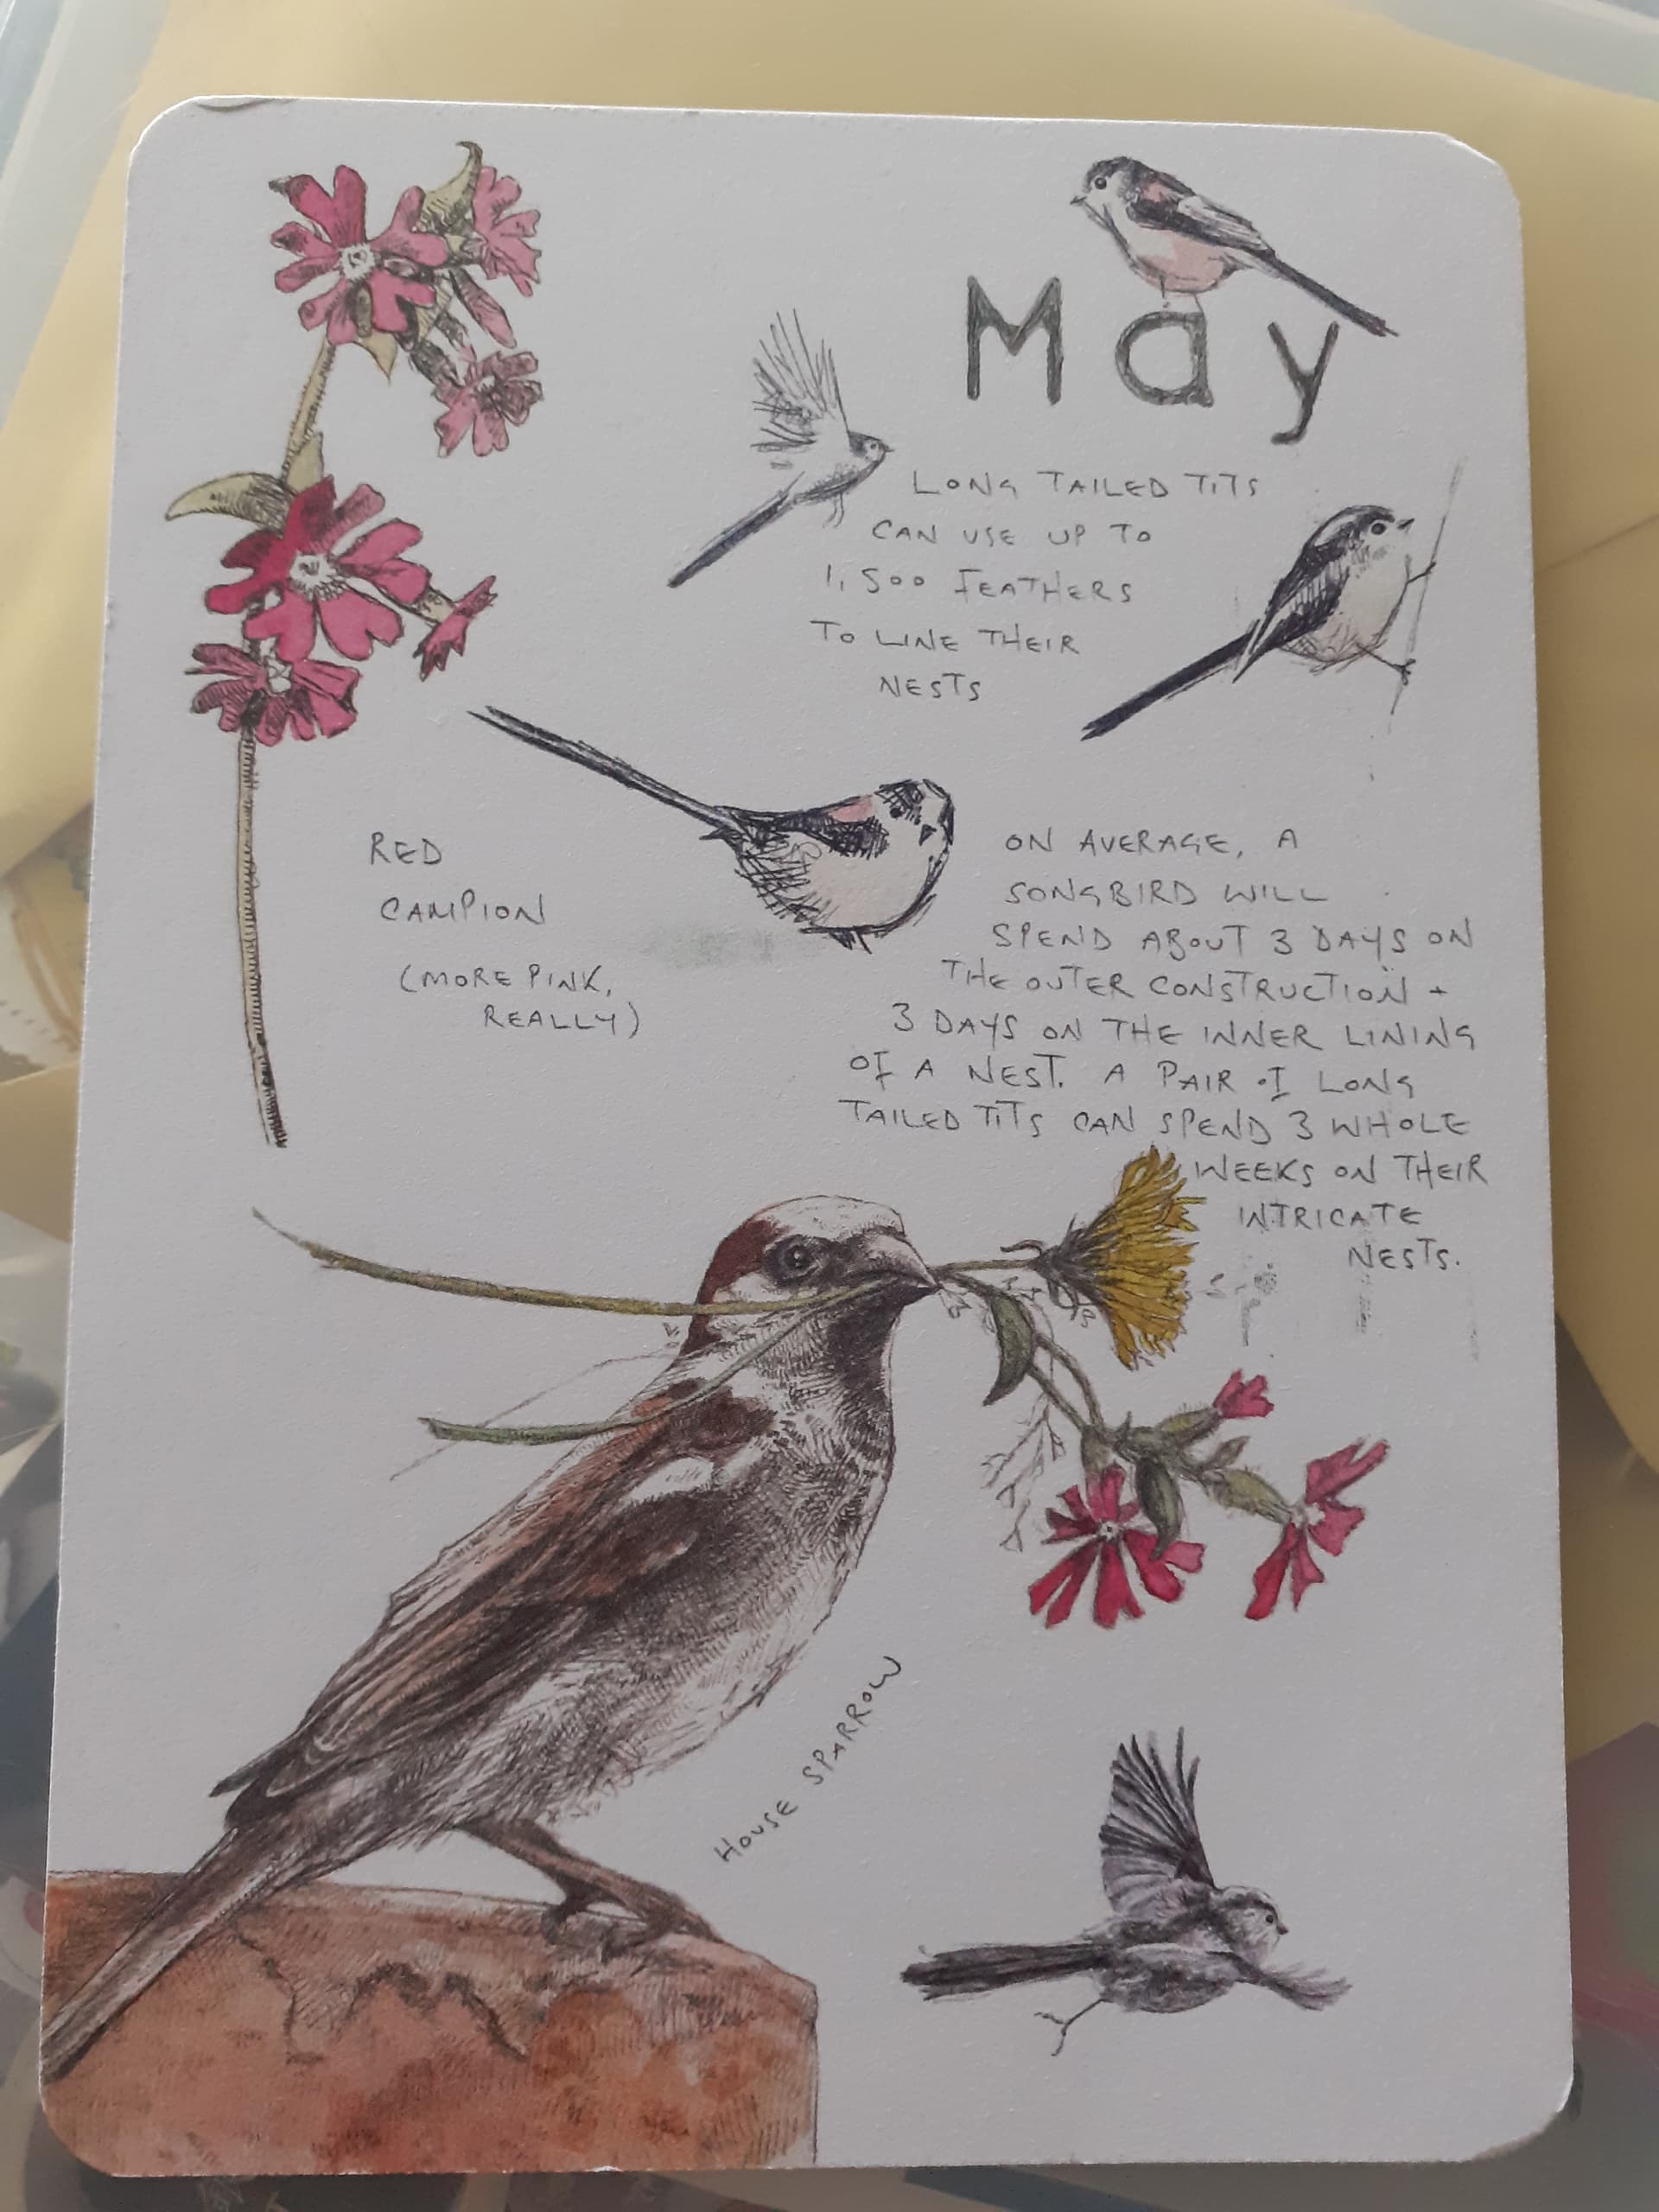 May
LONG TAILED TITS
CAN USE UP TO
1,500 FEATHERS
TO LINE THEIR
NESTS
RED
CAMPION
(MORE PINK,
REALLY)
ON AVERAGE, A
SONGBIRD WILL
SPEND ABOUT 3 DAYS ON
THE OUTER CONSTRUCTION +
3 DAYS ON THE INNER LINING
OF A NEST. A PAIR OF LONG
TAILED TITS CAN SPEND 3 WHOLE
WEEKS ON THEIR
INTRICATE
NESTS.
HOUSE SPARROW